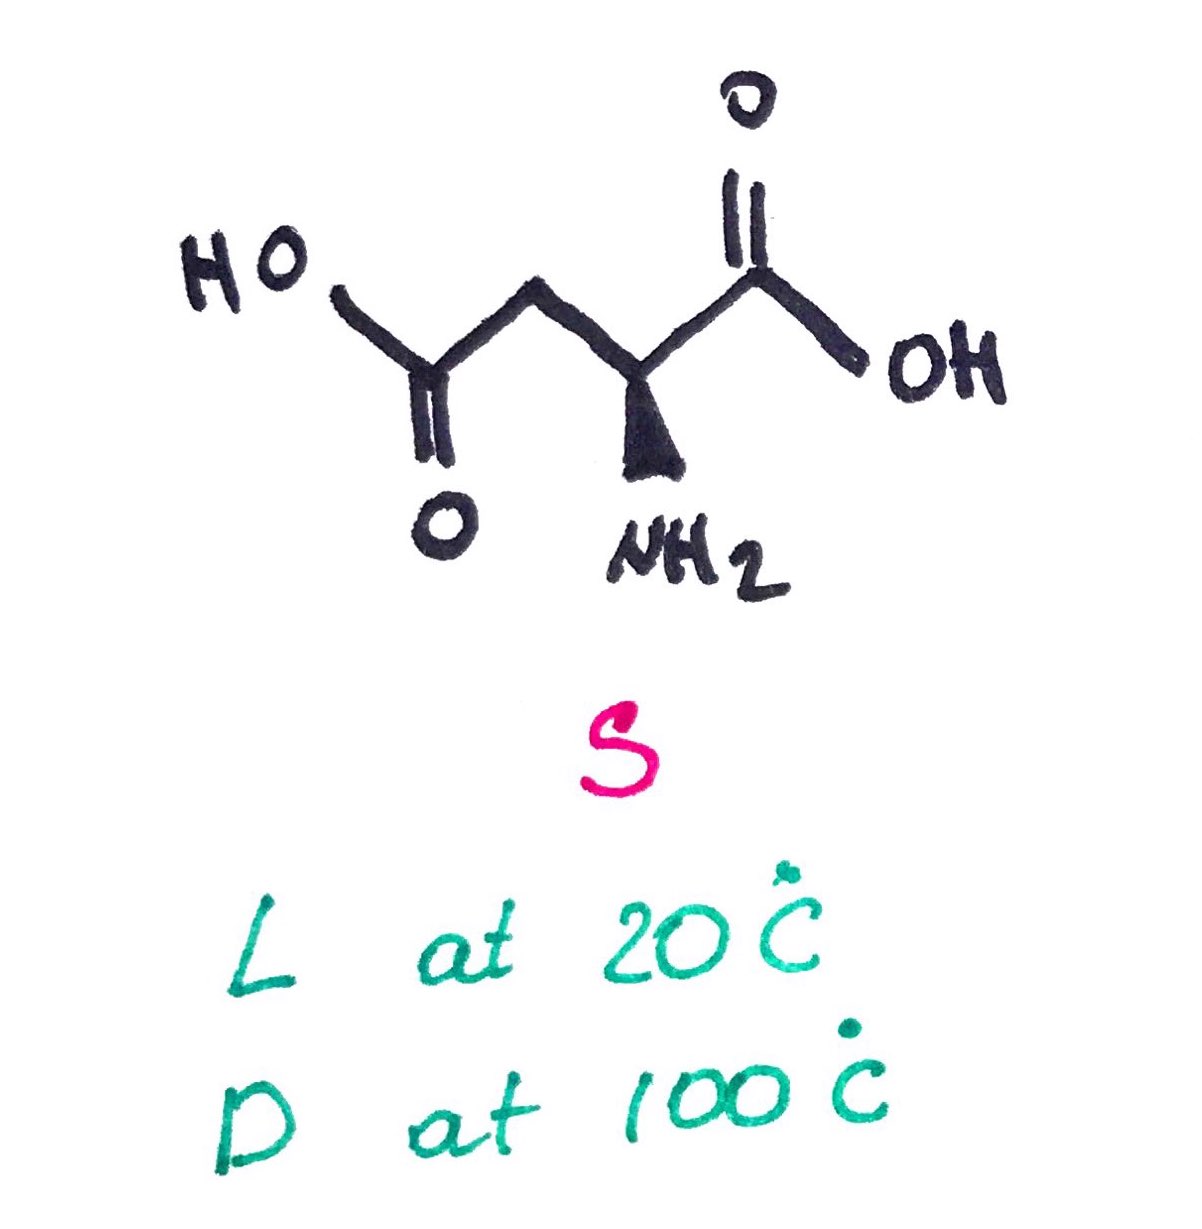 O
HO
OH
O
NH2
S
L at 20°C
D at 100°C